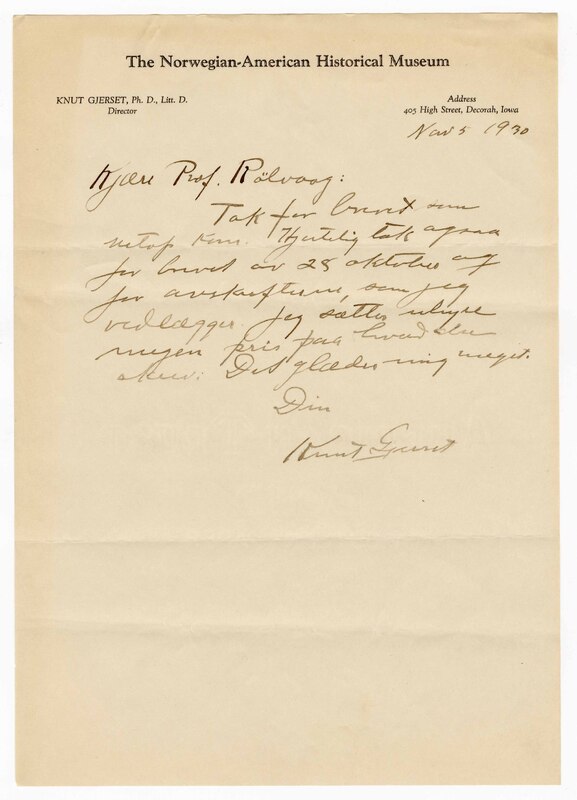 The Norwegian-American Historical Museum
KNUT GJERSET, Ph. D., Litt. D.
Director
Address
405 High Street, Decorah, Iowa
Nov 5 1930
Kjære Prof. Rölvaag:
Tak for brevet som
netop kom. Hjertelig tak ogsaa
for brevet av 28 oktober og
for avskriftene, som jeg
vedlægger. Jeg sætter uhyre
megen pris paa hvad
skrev. Det glæder mig meget.
Din
Knut Gjerset